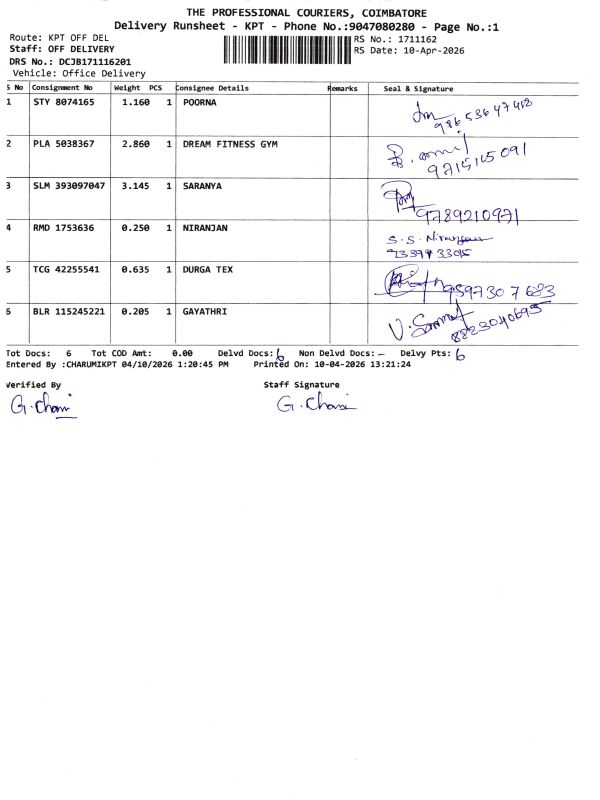 THE PROFESSIONAL COURIERS, COIMBATORE
Delivery Runsheet - KPT - Phone No.:9047080280 - Page No.:1
Route: KPT OFF DEL RS No.: 1711162
Staff: OFF DELIVERY RS Date: 10-Apr-2026
DRS No.: DCJB171116201
Vehicle: Office Delivery
S No Consignment No Weight PCS Consignee Details Remarks Seal & Signature
1 STY 8074165 1.160 1 POORNA
2 PLA 5038367 2.860 1 DREAM FITNESS GYM
9715145091
3 SLM 393097047 3.145 1 SARANYA
9789210971
4 RMD 1753636 0.250 1 NIRANJAN S.S. Niranjan
5 TCG 42255541 0.635 1 DURGA TEX
9597307683
6 BLR 115245221 0.205 1 GAYATHRI
Tot Docs: 6 Tot COD Amt: 0.00 Delvd Docs: 6 Non Delvd Docs: - Delvy Pts: 6
Entered By :CHARUMIKPT 04/10/2026 1:20:45 PM Printed On: 10-04-2026 13:21:24
Verified By Staff Signature